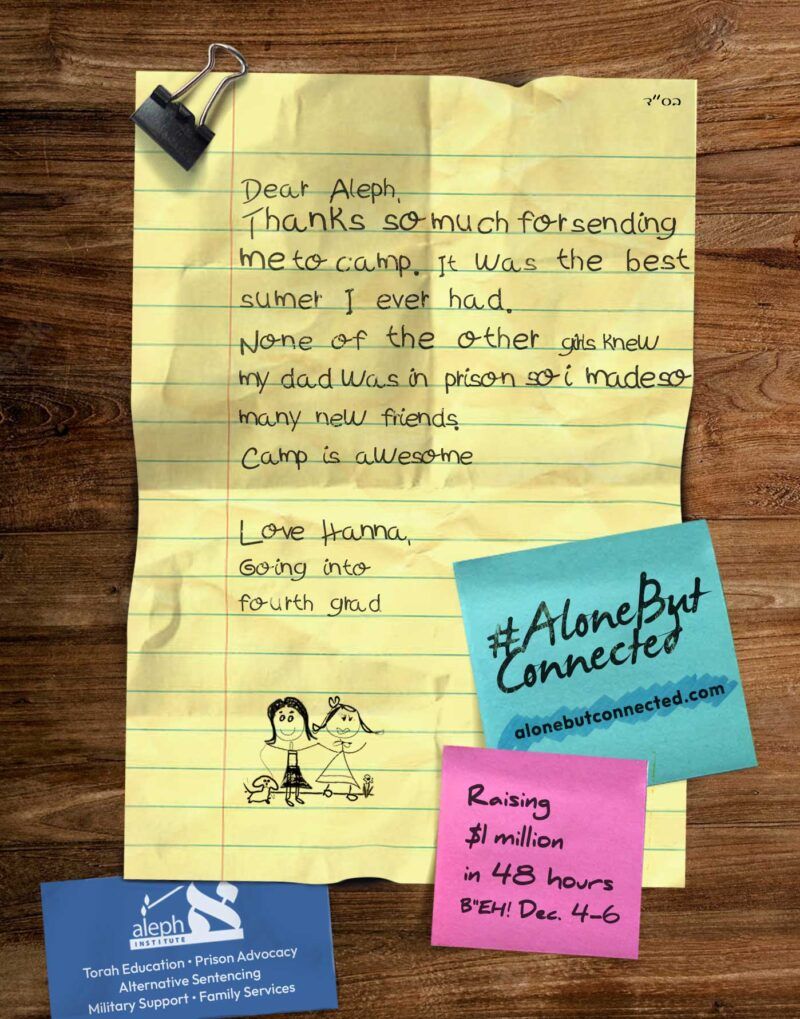 בס"ד
Dear Aleph,
Thanks so much for sending
me to camp. It was the best
sumer I ever had.
None of the other girls knew
my dad was in prison so i made so
many new friends.
Camp is awesome
Love Hanna,
Going into
fourth grad
#AloneBut
Connected
alonebutconnected.com
Raising
$1 million
in 48 hours
B"EH! Dec. 4-6
א
aleph
INSTITUTE
Torah Education • Prison Advocacy
Alternative Sentencing
Military Support • Family Services